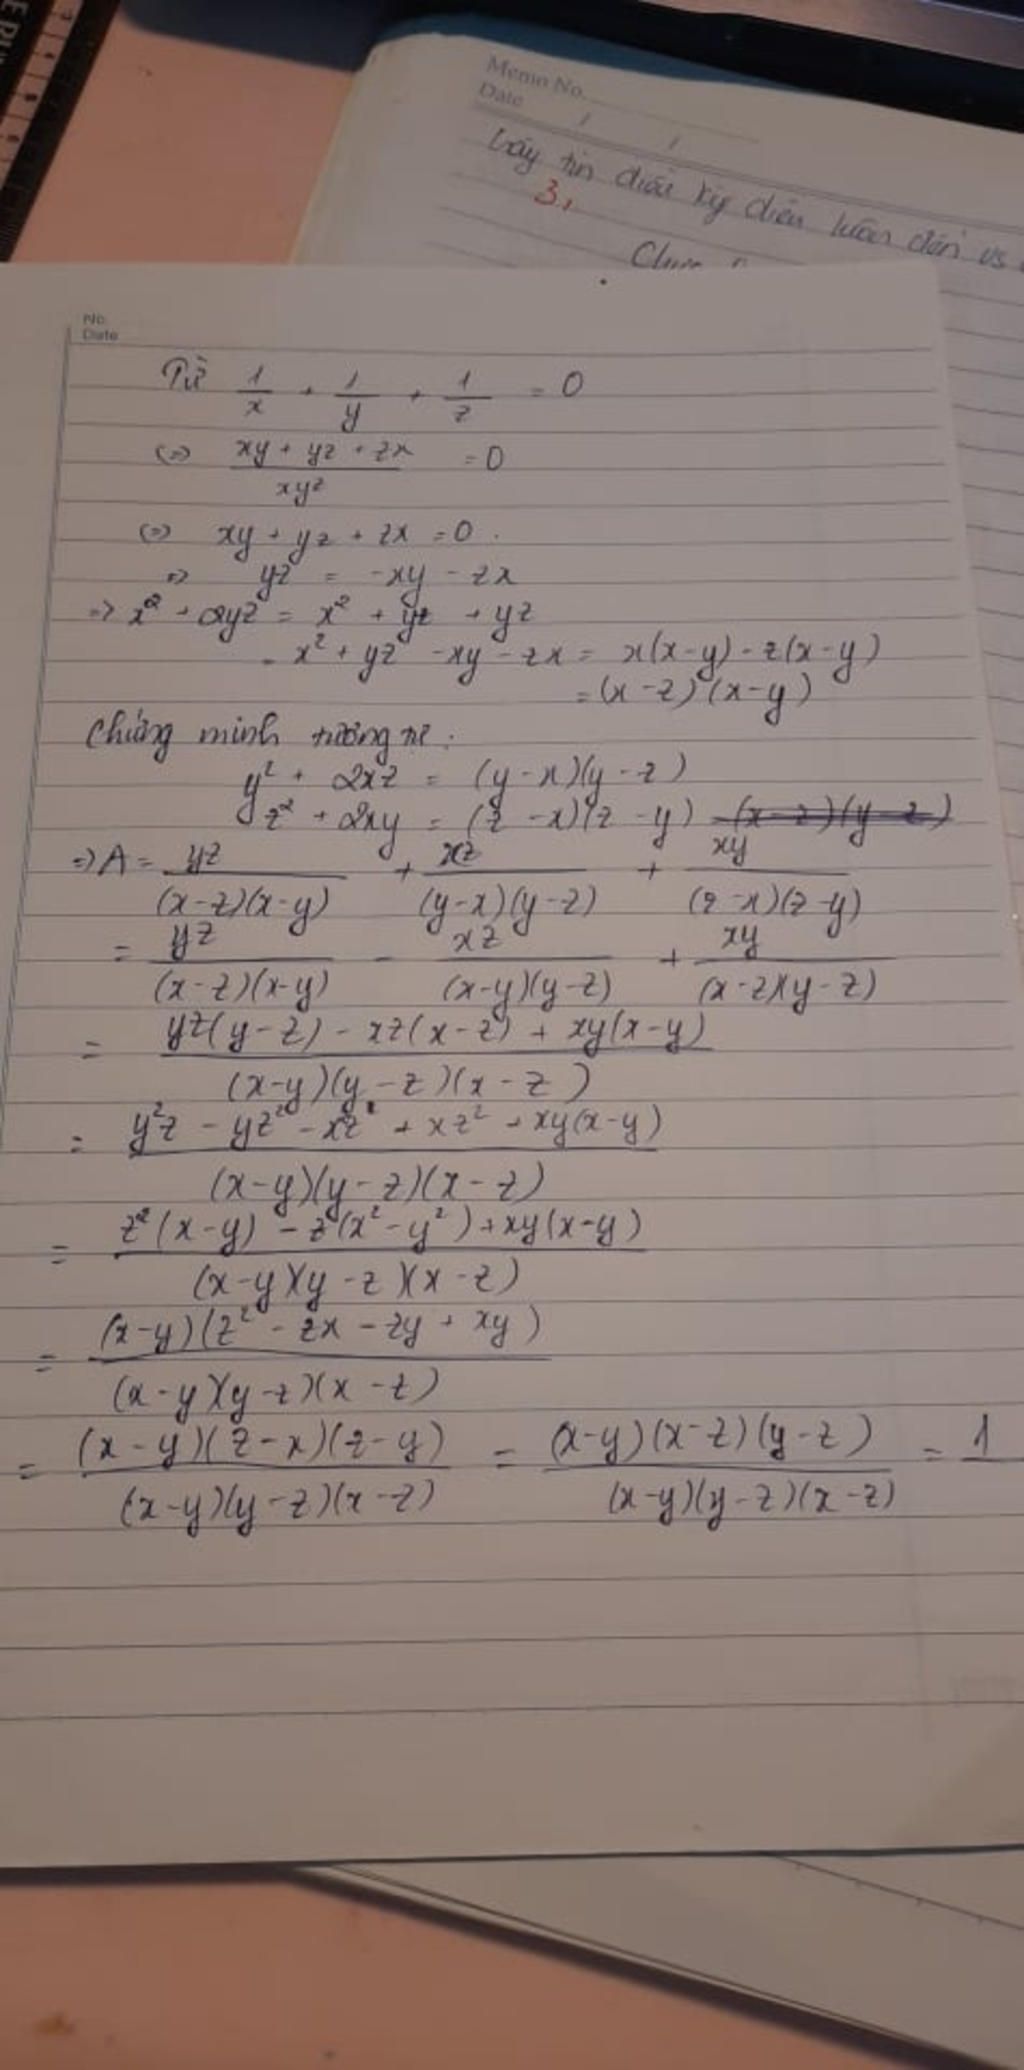 Memo No.
Date / /
Hãy tin điều kỳ diệu luôn đến vs
3,
No.
Date
Từ 1/x + 1/y + 1/z = 0
(=) (xy + yz + zx)/xyz = 0
(=) xy + yz + zx = 0.
=> yz = -xy - zx
=> x² + 2yz = x² + yz + yz
= x² + yz - xy - zx = x(x-y) - z(x-y)
= (x-z)(x-y)
Chứng minh tương tự:
y² + 2xz = (y-x)(y-z)
z² + 2xy = (z-x)(z-y) (x-z)(y-z)
=> A = yz/(x-z)(x-y) + xz/(y-x)(y-z) + xy/(z-x)(z-y)
= yz/(x-z)(x-y) - xz/(x-y)(y-z) + xy/(x-z)(y-z)
= (yz(y-z) - xz(x-z) + xy(x-y))/(x-y)(y-z)(x-z)
= (y²z - yz² - xz² + xz² + xy(x-y))/(x-y)(y-z)(x-z)
= (z²(x-y) - z(x²-y²) + xy(x-y))/(x-y)(y-z)(x-z)
= (x-y)(z² - zx - zy + xy)/(x-y)(y-z)(x-z)
= (x-y)(z-x)(z-y)/(x-y)(y-z)(x-z) = (x-y)(x-z)(y-z)/(x-y)(y-z)(x-z) = 1